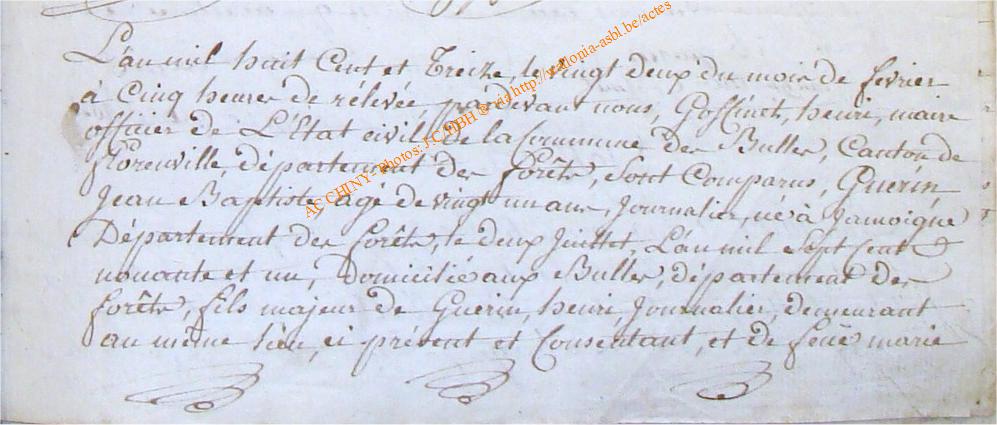 L'an mil huit Cent et Treize, le vingt deux du mois de fevrier
à Cinq heures de rélevée, pardevant nous, Goffinet, henri, maire
officier de L'Etat civil, de la Commune des Bulles, Canton de
florenville, département des forêts, sont Comparus, Guérin
Jean Baptiste, âgé de vingt un ans, Journalier, né à Jamoigne
Département des forêts, le deux Juillet, L'an mil sept Cent
nonante et un, Domicilié aux Bulles, département des
forêts, fils majeur de Guérin, henri, Journalier, demeurant
au même lieu, ci présent et Consentant, et de feüe marie
AC CHINY - Photos: J.C.MBH ® via http://wallonia-asbl.be/actes